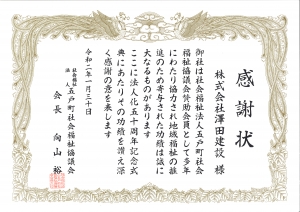 感謝状
株式会社澤田建設 様
御社は社会福祉法人五戸町社会
福祉協議会賛助会員として多年
にわたり協力され地域福祉の推
進のため寄与された功績は誠に
大なるものがあります
ここに法人化五十周年記念式
典にあたりその功績を讃え深
く感謝の意を表します
令和二年一月三十日
社会福祉法人 五戸町社会福祉協議会
会長 向山 裕